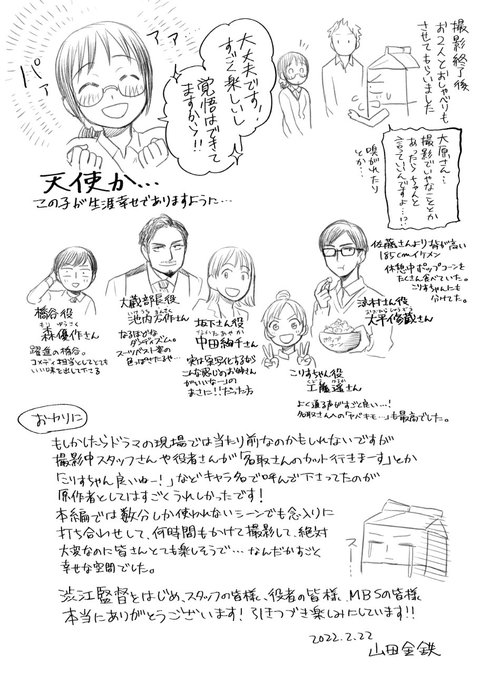 撮影終了後
お2人とおしゃべりも
させてもらいました
大原さん…
撮影でいやなこととか
あったらちゃんと
言っていいんですよ…!?
嗅がれたり
とか…
大丈夫です!
すごく楽しいし
覚悟はできて
ますから!!
アァァ
パァ
天使か…
この子が生涯幸せでありますように…
佐藤さんより背が高い
185cmイケメン
休憩中ポップコーンを
たくさん食べていた。
こりすちゃんにも
分けてた。
橋谷役
森優作さん
躍進の橋谷。
コメディ担当としてとても
いい味を出してたてる
大蔵部長役
池内万作さん
なるほどな、
ダンディズム。
スーツベスト姿の
色っぽさたるや…
坂下さん役
中田絢千さん
実は実写化するなら
こんな感じのお姉さん
がいいなーの
まさに!!だった方
こりすちゃん役
工藤遥さん
よく通る声がすごと良い…!
名取さんへの「ヤベキモ…」も最高でした。
津村さん役
大平修蔵さん
おわりに
もしかしたらドラマの現場では当たり前なのかもしれないですが
撮影中スタッフさんや役者さんが「名取さんのカット行きまーす」とか
「こりすちゃん良いねー!」などキャラ名で呼んで下さってたのが
原作者としてはすごくうれしかったです!
本編では数分しか使われないシーンでも念入りに
打ち合わせして、何時間もかけて撮影して、絶対
大変なのに皆さんとても楽しそうで…なんだかすごと
幸せな空間でした。
渋江監督をはじめ、スタッフの皆様、役者の皆様、MBSの皆様
本当にありがとうございます!引きつづき楽しみにしています!!
2022.2.22
山田金鉄
スー…